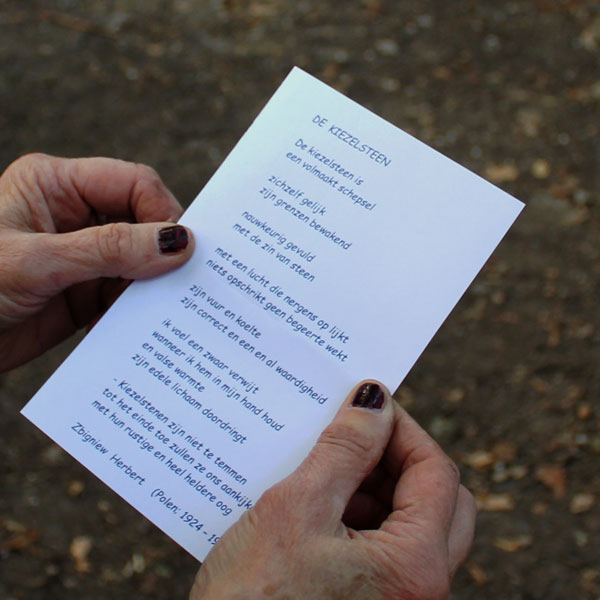 DE KIEZELSTEEN
De kiezelsteen is
een volmaakt schepsel
zichzelf gelijk
zijn grenzen bewakend
nauwkeurig gevuld
met de zin van steen
met een lucht die nergens op lijkt
niets opschrikt geen begeerte wekt
zijn vuur en koelte
zijn correct en een en al waardigheid
ik voel een zwaar verwijt
wanneer ik hem in mijn hand houd
en valse warmte
zijn edele lichaam doordringt
- Kiezelstenen zijn niet te temmen
tot het einde toe zullen ze ons aankijk
met hun rustige en heel heldere oog
Zbigniew Herbert (Polen; 1924 - 19